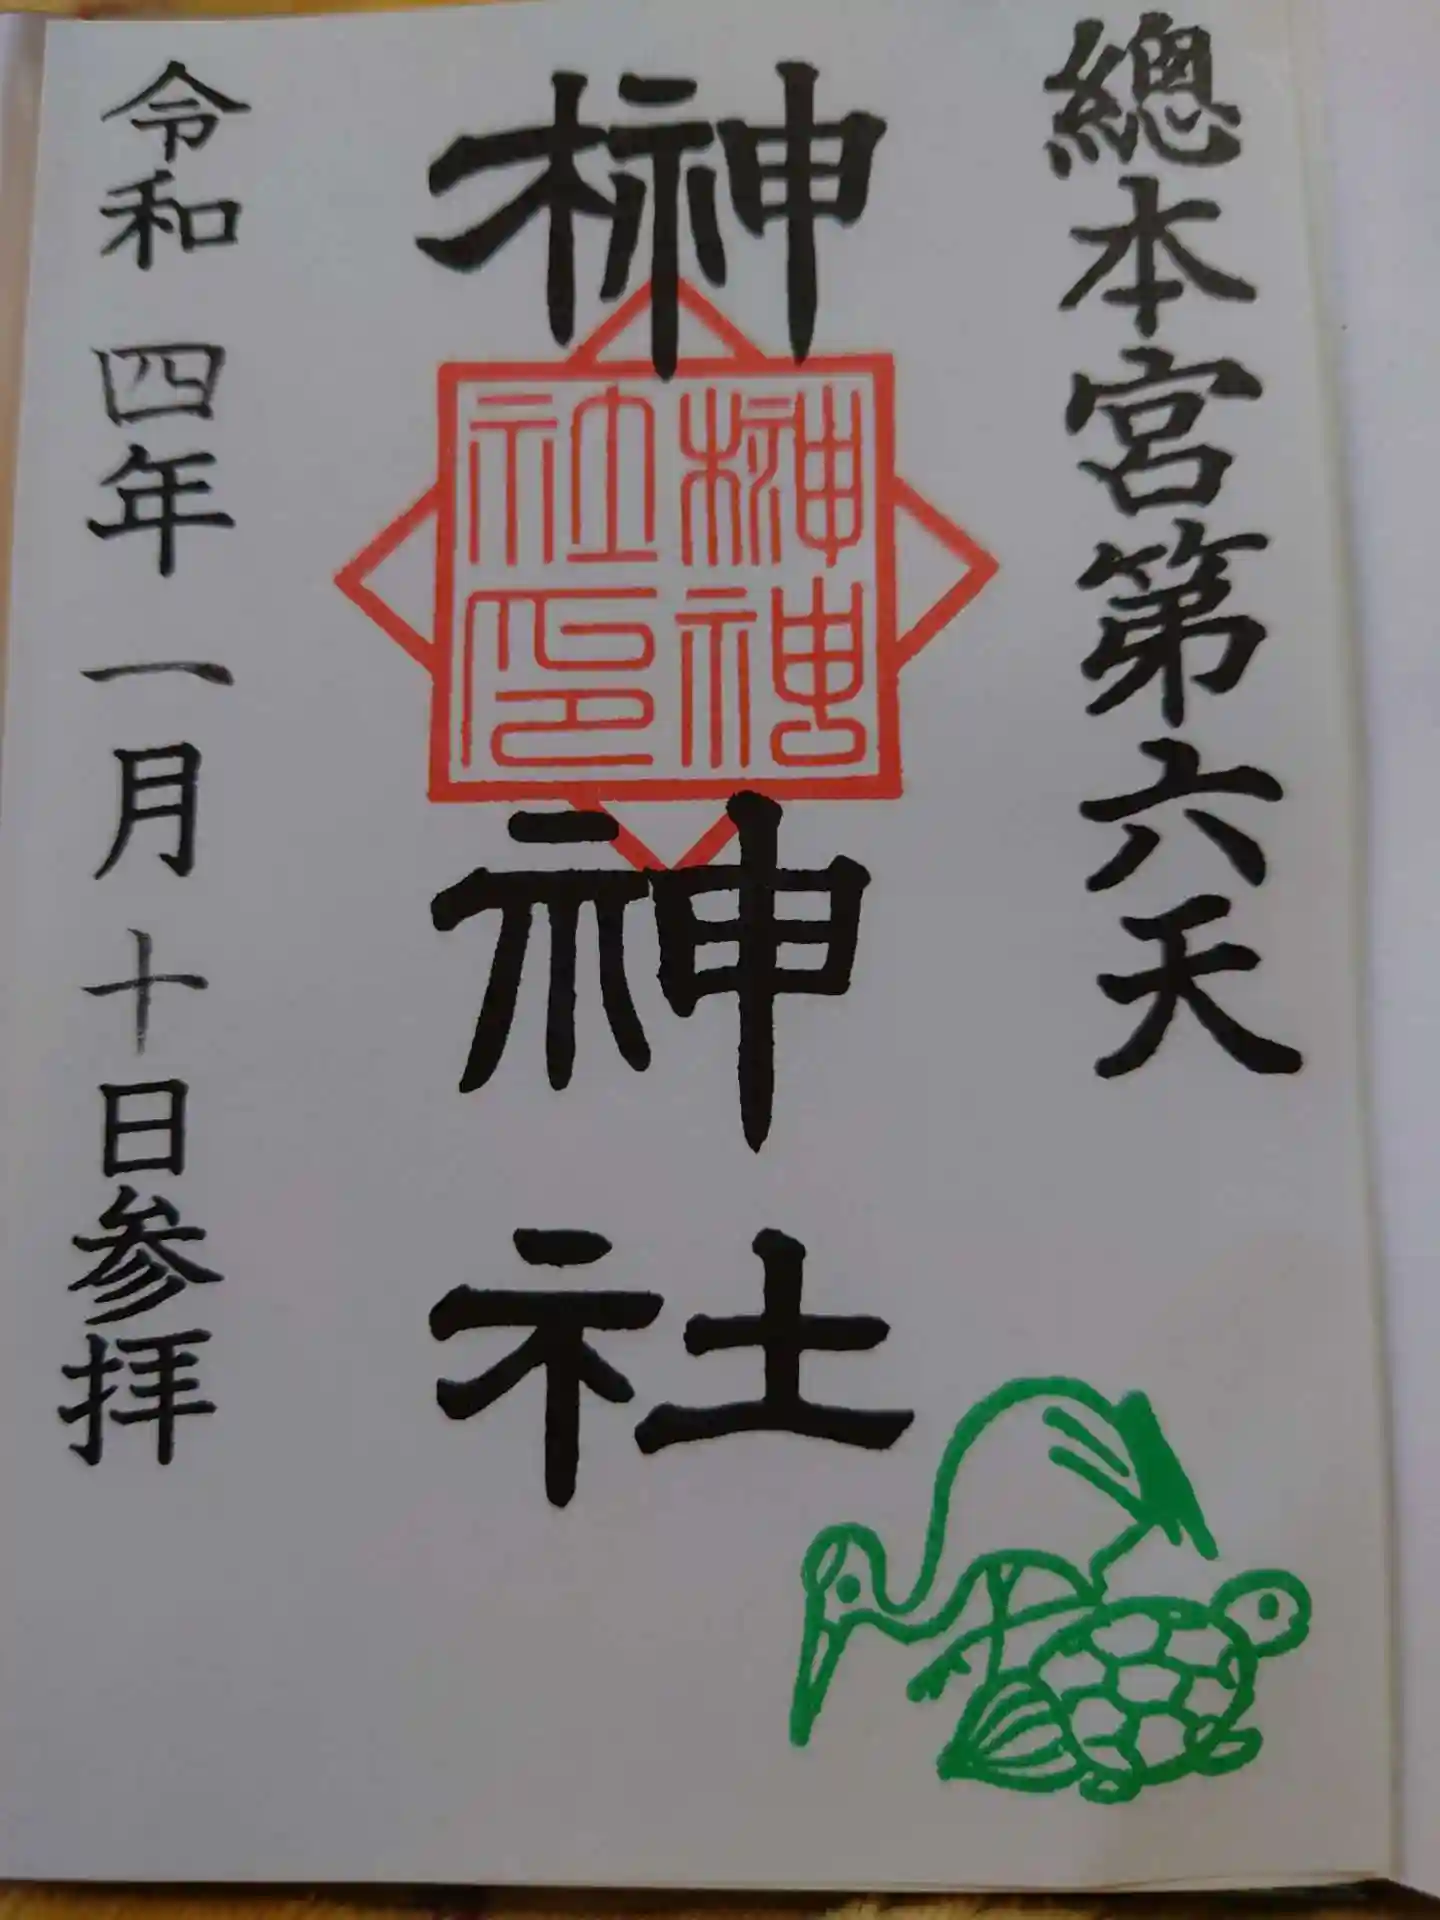 總本宮第六天
榊神社
榊神社印
令和四年一月十日参拝